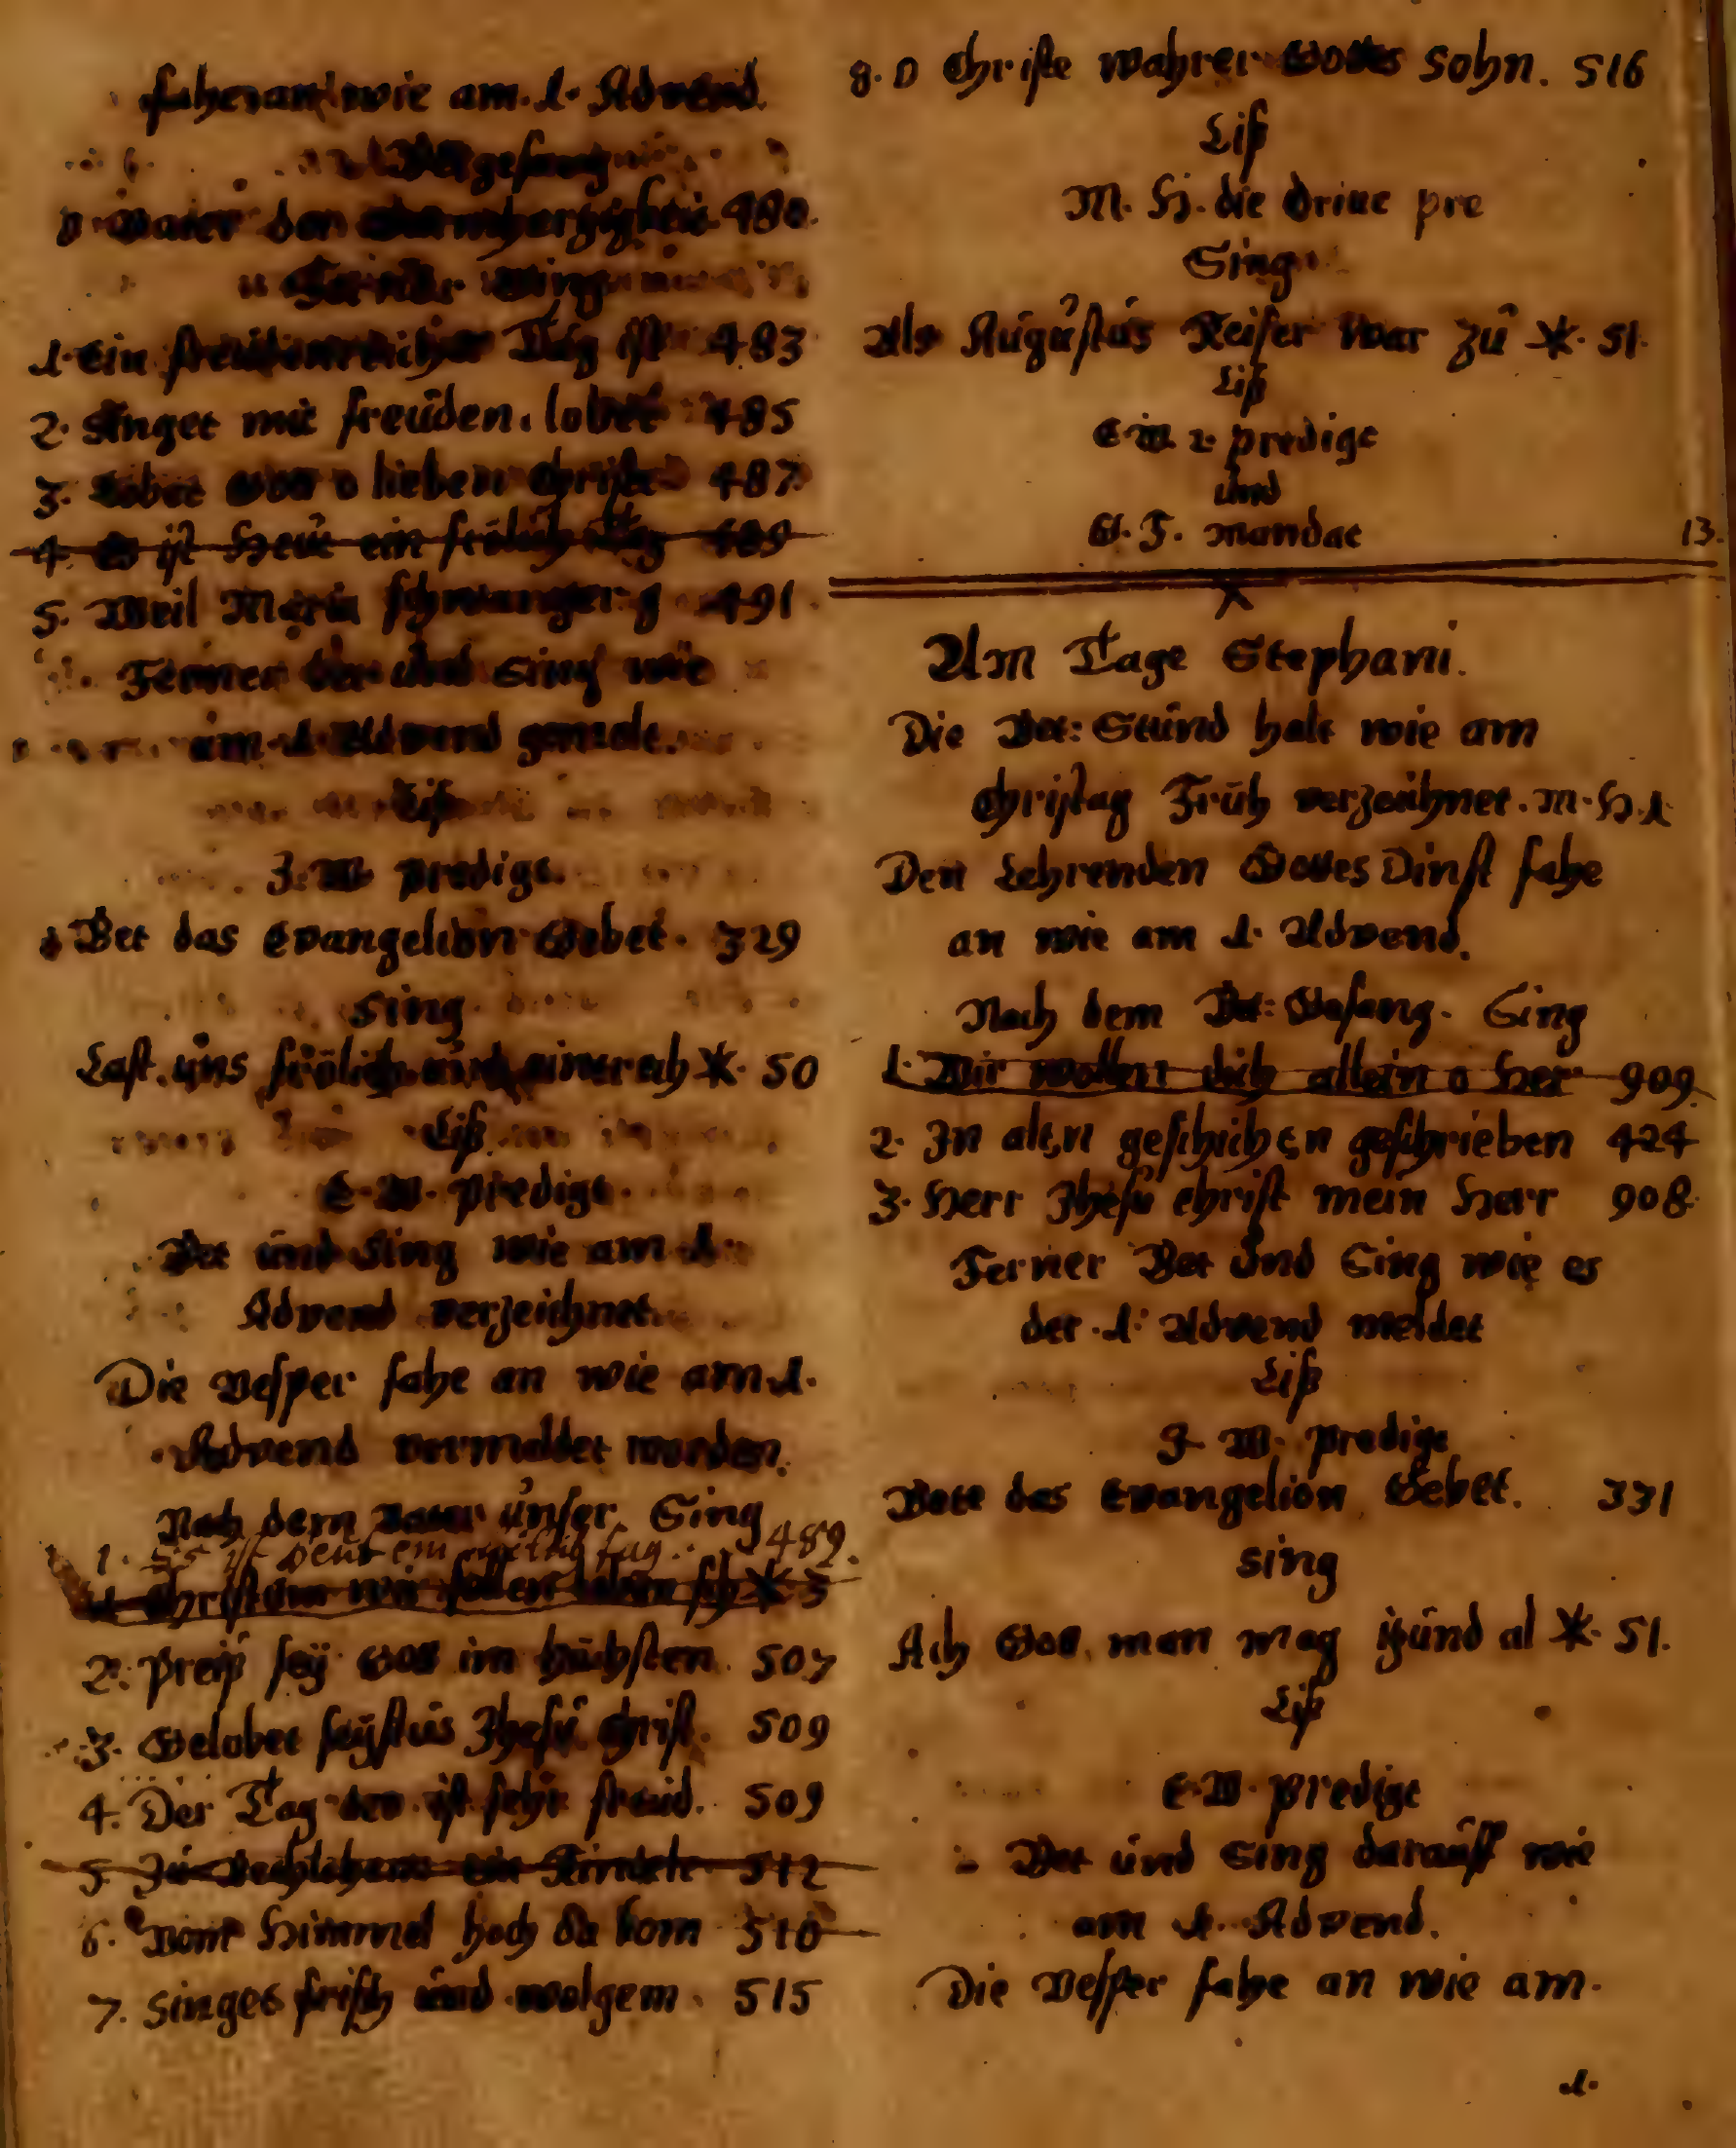 fahe an wie am .1. Advend.
Betgesang
O Vater der Barmherzigkeit 480.
Ferner Sing
1. Ein freüdenreicher Tag ist 483
2. Singet mit freüden. lobet 485
3. Lobet Gott o lieben Christen 487.
4. Es ist Heüt ein frölich Tag 489
5. Weil Maria schwanger g 491.
Ferner Bet und Sing wie
am .1. Advend gemelt.
Liß
J. W. predigt.
Bet das Evangelion Gebet. 329
Sing
Last uns frölich und einerech *. 50
Liß
E. W. predigt.
Bet und Sing wie am .1.
Advend verzeichnet.
Die Vesper fahe an wie am .1.
Advend vermeldet worden.
Nach dem Vater unser Sing
1. Es ist heut ein frölich tag.. 489.
1. Christum wir sollen loben sch * 3
2. preiß seÿ Gott im höchsten. 507
3. Gelobet seÿstus Jhesu Christ. 509
4. Der Tag der ist sehr freud. 509
5. Zu Bethlehem ein Kindele 512
6. Vom Himmel hoch da kom 510
7. Singet frisch und wolgem. 515
8. O Christe wahrer Gottes Sohn. 516
Liß
M. H. die Dritte pre
Sing
Als Augustus Keiser war zu *. 51.
Liß
E. W. 2. predigt
und
G. F. Mandat
13.
Am Tage Stephani.
Die Bet: Stund halt wie am
Christag Früh verzeichnet. M. H. 1.
Den Lehrenden Gottes Dinst fahe
an wie am .1. Advend.
Nach dem Bet: Gesang. Sing
1. Wir wollen dich allein o Her 909.
2. In alten geschichten geschrieben 424
3. Herr Jhesu Christ mein Herr 908.
Ferner Bet und Sing wie es
der .1. Advend meldet
Liß
J. W. predigt
Bete das Evangelion Gebet. 331
Sing
Ach Gott man mag izund al *. 51.
Liß
E. W. predigt
Bet und Sing darauff wie
am .1. Advend.
Die Vesper fahe an wie am.
.1.